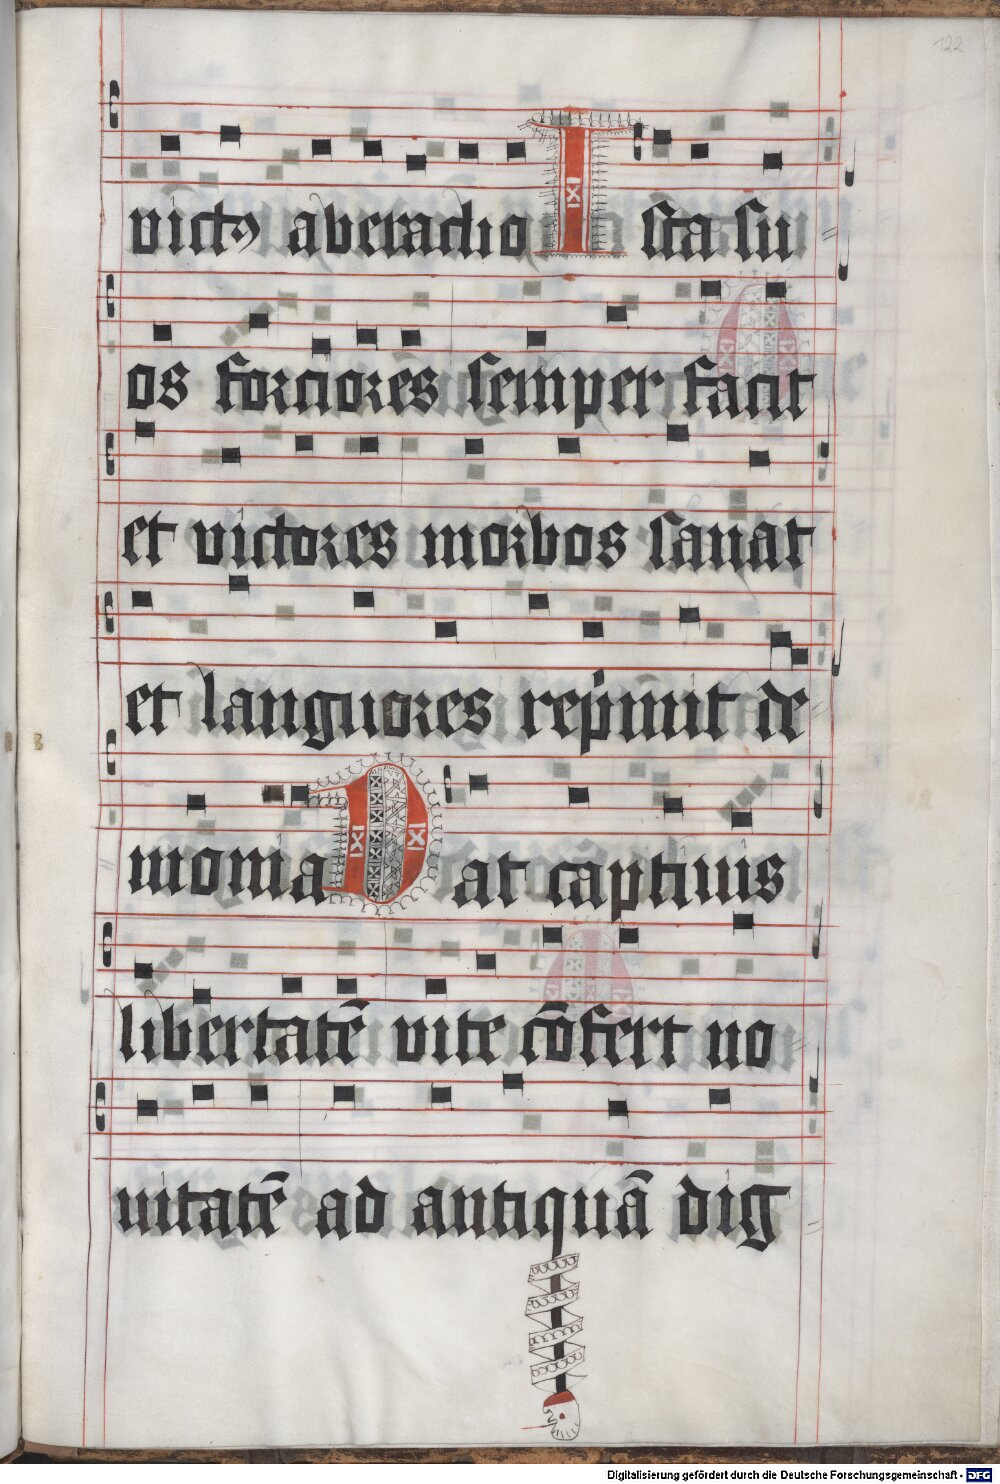 122
victꝰ aberadio Ista su
os forciores semper facit
et victores morbos sanat
et languores rep̍mit de
monia Dat captiuis
libertatē vite cōfert no
uitatē ad antiquā dig
Digitalisierung gefördert durch die Deutsche Forschungsgemeinschaft - DFG